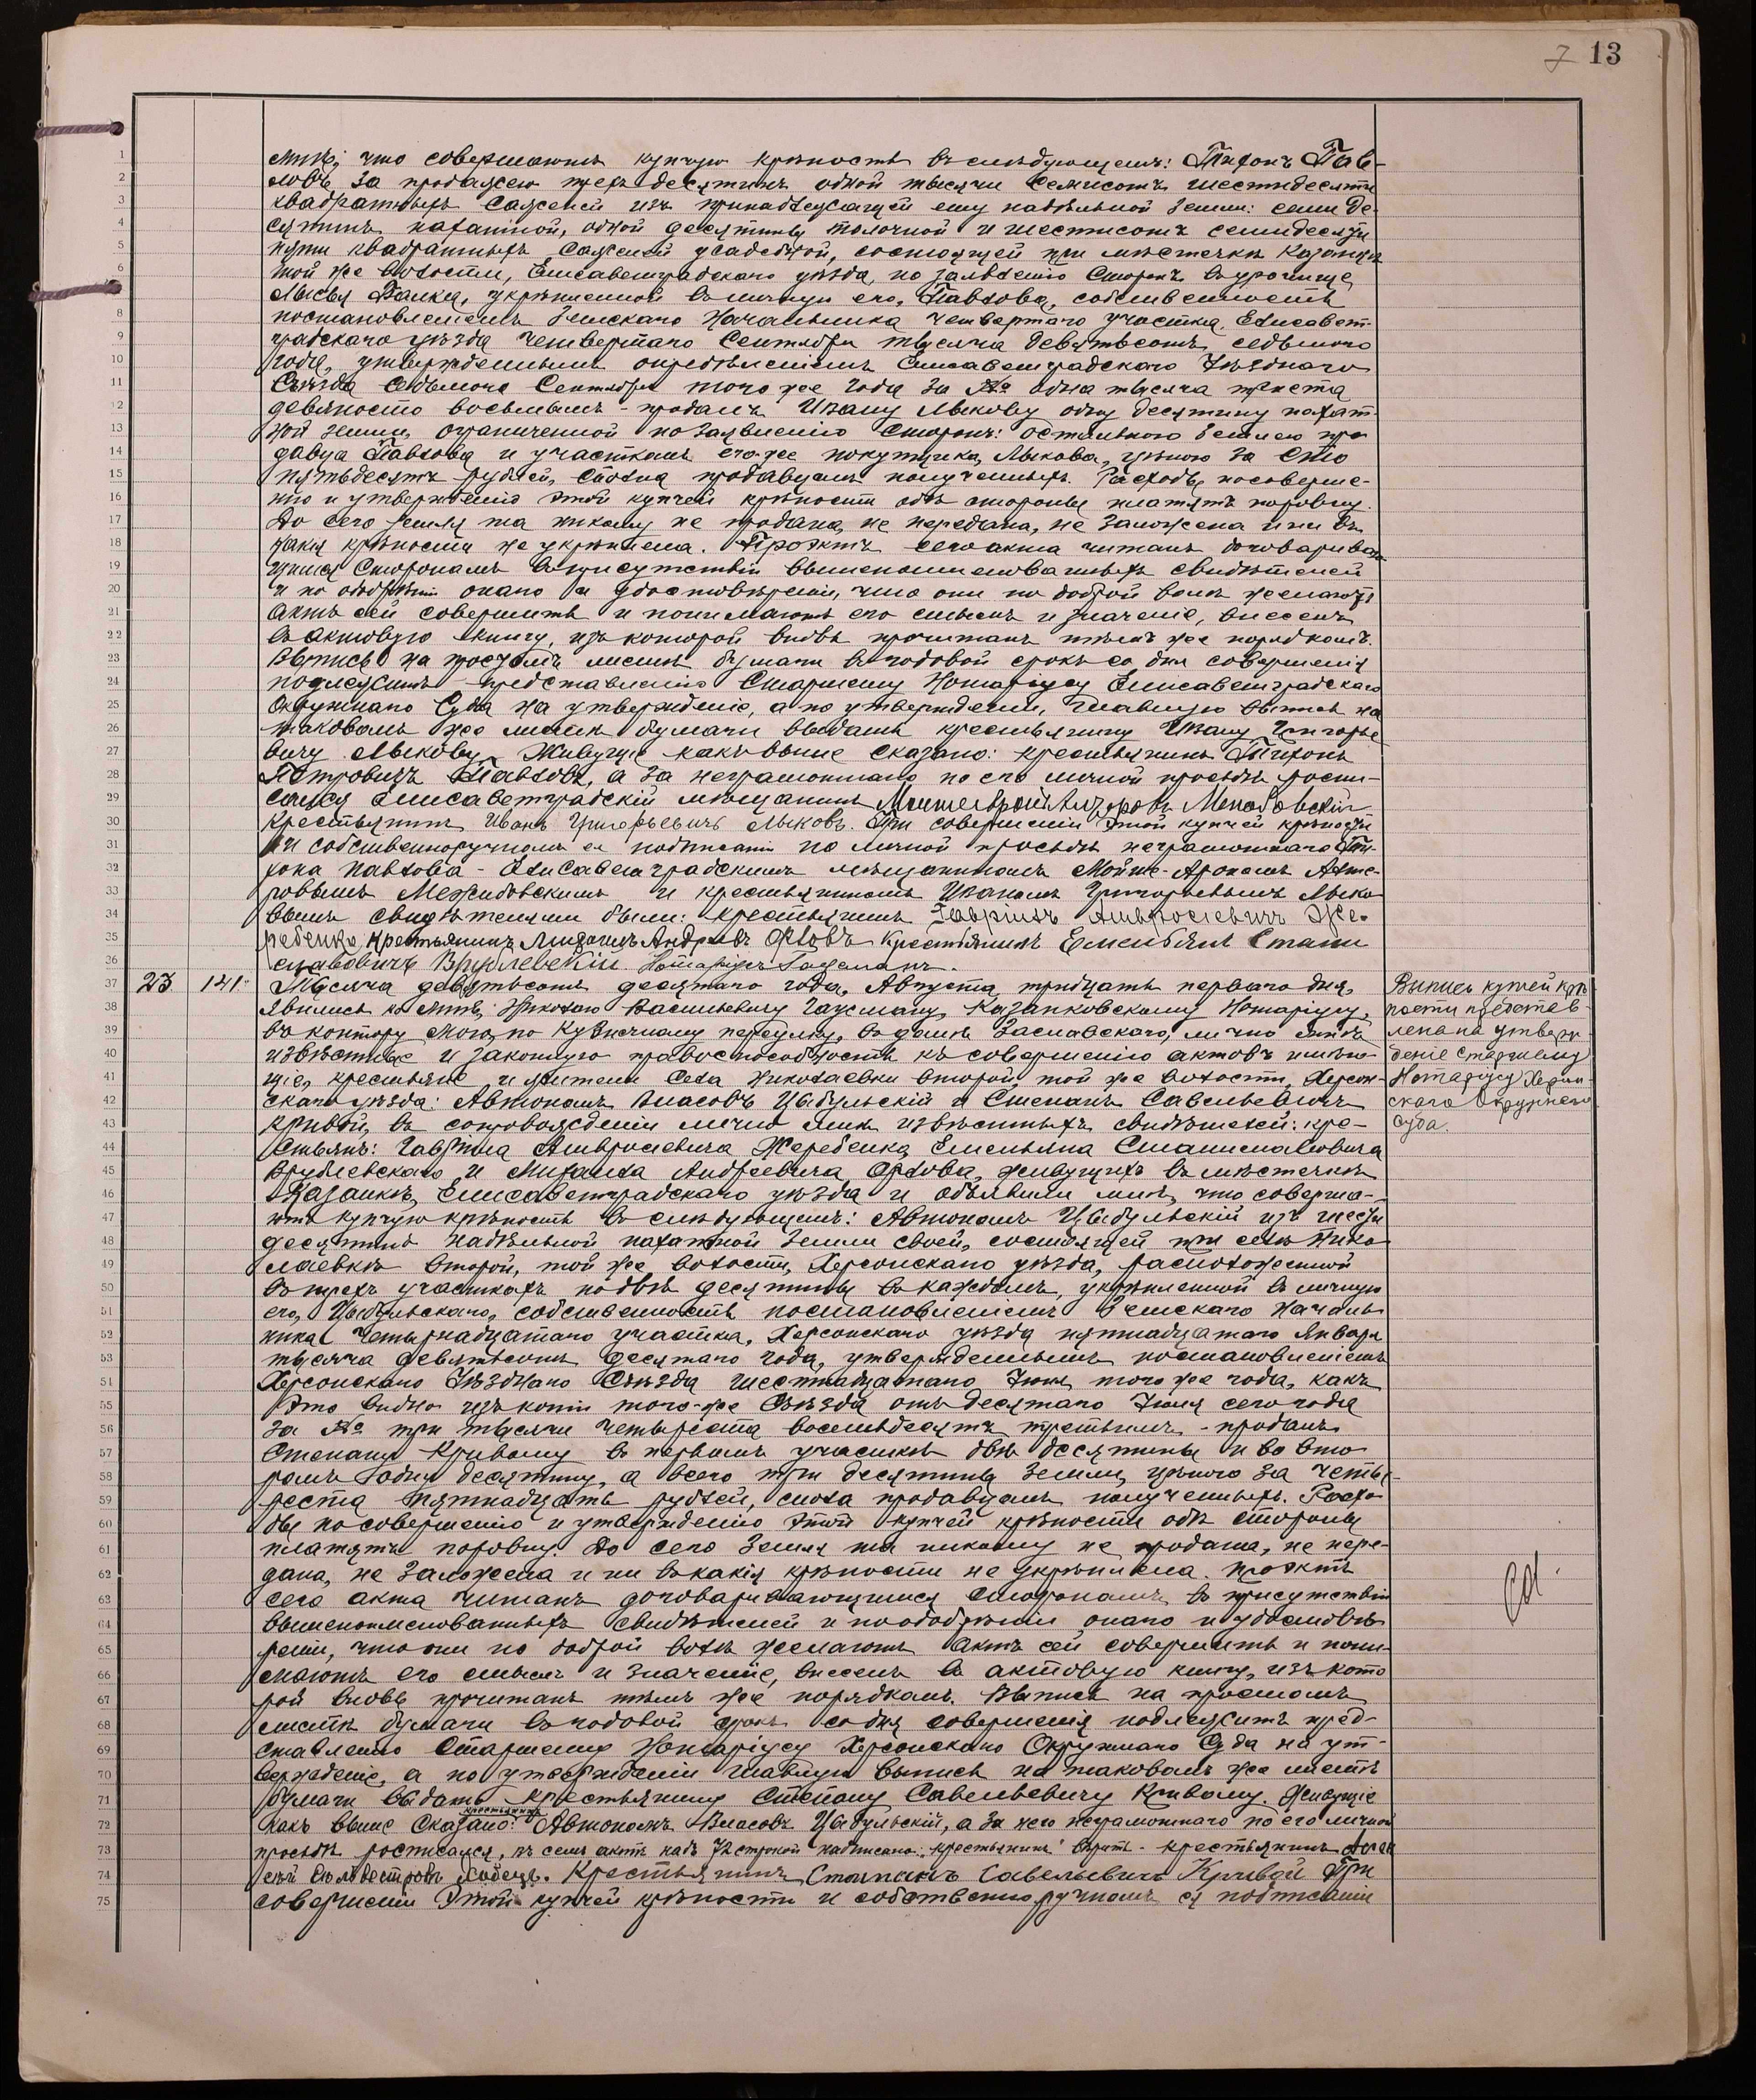 13
мнѣ, что совершаютъ купчую крѣпость въ слѣдующемъ: Тихонъ Пав-
ловъ, за продажею трехъ десятинъ одной тысячи семисотъ шестидесяти
квадратныхъ саженей изъ принадлежащей ему надѣльной земли: семи де-
сятинъ пахатной, одной десятины толочной и шестисотъ семидесяти
пяти квадратныхъ саженей усадебной, состоящей при мѣстечкѣ Казанкѣ
той же волости, Елисаветградскаго уѣзда, по заявленію сторонъ въ урочищѣ
Лысья Балка, укрѣпленной въ личную его, Павлова, собственность
постановленіемъ Земскаго Начальника четвертаго участка, Елисавет-
градскаго уѣзда четвертаго Сентября тысяча девятьсотъ седьмого
года, утвержденнымъ опредѣленіемъ Елисаветградскаго Уѣзднаго
Съѣзда седьмого Сентября того же года за № одна тысяча триста
девяносто восьмымъ - продалъ Ивану Лыкову одну десятину пахат-
ной земли, ограниченной по заявленію сторонъ: остальною землею про-
давца Павлова и участкомъ его-же покупщика, Лыкова, цѣною за сто
пятьдесятъ рублей, сполна продавцомъ полученныхъ. Расходы по соверше-
нію и утвержденію этой купчей крѣпости обѣ стороны платятъ поровну.
До сего земля та никому не продана, не передана, не заложена и ни въ
какія крѣпости не укрѣплена. Проэктъ сего акта читанъ договариваю-
щимся сторонамъ въ присутствіи вышепоименованныхъ свидѣтелей
и по одобреніи онаго и удостовѣреніи, что они по доброй волѣ желаютъ
актъ сей совершить и понимаютъ его смыслъ и значеніе, внесенъ
въ актовую книгу, изъ которой вновь прочитанъ тѣмъ же порядкомъ.
Выпись на простомъ листѣ бумаги въ годовой срокъ со дня совершенія
подлежитъ представленію Старшему Нотаріусу Елисаветградскаго
Окружнаго Суда на утвержденіе, а по утвержденіи, главную выпись на
таковомъ же листѣ бумаги выдать крестьянину Ивану Григорье-
вичу Лыкову. Живущіе какъ выше сказано: крестьянинъ Тихонъ
Петровичъ Павловъ, а за неграмотнаго по его личной просьбѣ роспи-
сался Елисаветградскій мѣщанинъ
крестьянинъ Иванъ Григорьевичъ Лыковъ. При совершеніи этой купчей крѣпости
и собственноручномъ ея подписаніи по личной просьбѣ неграмотнаго Ти-
хона Павлова - Елисаветградскимъ мѣщаниномъ Мойше-Арономъ
Межибовскимъ и крестьяниномъ Иваномъ Григорьевымъ Лыко-
вымъ свидѣтелями были: крестьянинъ Гавріилъ Амвросіевичъ Же-
ребенко, крестьянинъ Михаилъ Андреевъ Орловъ крестьянинъ Емельянъ Стани
славовичъ Врублевскій. Нотаріусъ Гаусманъ.
23. 141. Тысяча девятьсотъ десятаго года, Августа тридцать перваго дня,
явились ко мнѣ, Николаю Васильевичу Гаусману, Казанковскому Нотаріусу,
въ контору мою, по Кузнечному переулку, въ домѣ Заславскаго, лично мнѣ
извѣстные и законную правоспособность къ совершенію актовъ имѣю-
щіе, крестьяне и жители села Николаевки второй, той же волости, Херсон-
скаго уѣзда: Автономъ Власовъ Цыбульскій и Степанъ Савельевичъ
Кривой, въ сопровожденіи лично мнѣ извѣстныхъ свидѣтелей: кре-
стьянъ: Гавріила Амвросіевича Жеребенка, Емельяна Станиславовича
Врублевскаго и Михаила Андреевича Орлова, живущихъ въ мѣстечкѣ
Казанкѣ, Елисаветградскаго уѣзда и объявили мнѣ, что соверша-
ютъ купчую крѣпость въ слѣдующемъ: Автономъ Цыбульскій изъ шести
десятинъ надѣльной пахатной земли своей, состоящей при селѣ Нико-
лаевкѣ второй, той же волости, Херсонскаго уѣзда, расположенной
въ трехъ участкахъ по двѣ десятины въ каждомъ, укрѣпленной въ личную
его, Цыбульскаго, собственность постановленіемъ Земскаго Началь-
ника четырнадцатаго участка, Херсонскаго уѣзда пятнадцатаго Января
тысяча девятьсотъ десятаго года, утвержденнымъ постановленіемъ
Херсонскаго Уѣзднаго Съѣзда шестнадцатаго Іюня того же года, какъ
это видно изъ копіи того-же Съѣзда отъ десятаго Іюля сего года
за № три тысячи четыреста восемьдесятъ третьимъ - продалъ
Степану Кривому въ первомъ участкѣ двѣ десятины и во вто
ромъ одну десятину, а всего три десятины земли, цѣною за четы-
реста пятнадцать рублей, сполна продавцомъ полученныхъ. Расхо-
ды по совершенію и утвержденію этой купчей крѣпости обѣ стороны
платятъ поровну. До сего земля та никому не продана, не пере-
дана, не заложена и ни въ какія крѣпости не укрѣплена. Проэктъ
сего акта читанъ договаривающимся сторонамъ въ присутствіи
вышепоименованныхъ свидѣтелей и по одобреніи онаго и удостовѣ-
реніи, что они по доброй волѣ желаютъ актъ сей совершить и пони-
маютъ его смыслъ и значеніе, внесенъ въ актовую книгу, изъ кото
рой вновь прочитанъ тѣмъ же порядкомъ. Выпись на простомъ
листѣ бумаги въ годовой срокъ со дня совершенія подлежитъ пред-
ставленію Старшему Нотаріусу Херсонскаго Окружнаго Суда на ут-
вержденіе, а по утвержденіи главную выпись на таковомъ же листѣ
бумаги выдать крестьянину Степану Савельевичу Кривому. Живущіе
крестьянинъ
какъ выше сказано: Автономъ Власовъ Цыбульскій, а за него неграмотнаго по его личной
просьбѣ росписался, въ семъ актѣ надъ 72 строкой надписано „крестьянинъ" вѣрить. - крестьянинъ
крестьянинъ Степанъ Савельевичъ Кривой При
совершеніи этой купчей крѣпости и собственноручномъ ея подписаніи
Выпись купчей крѣ-
пости представ-
лена на утверж-
деніе Старшему
Нотаріусу Херсон-
скаго Окружнаго
Суда.